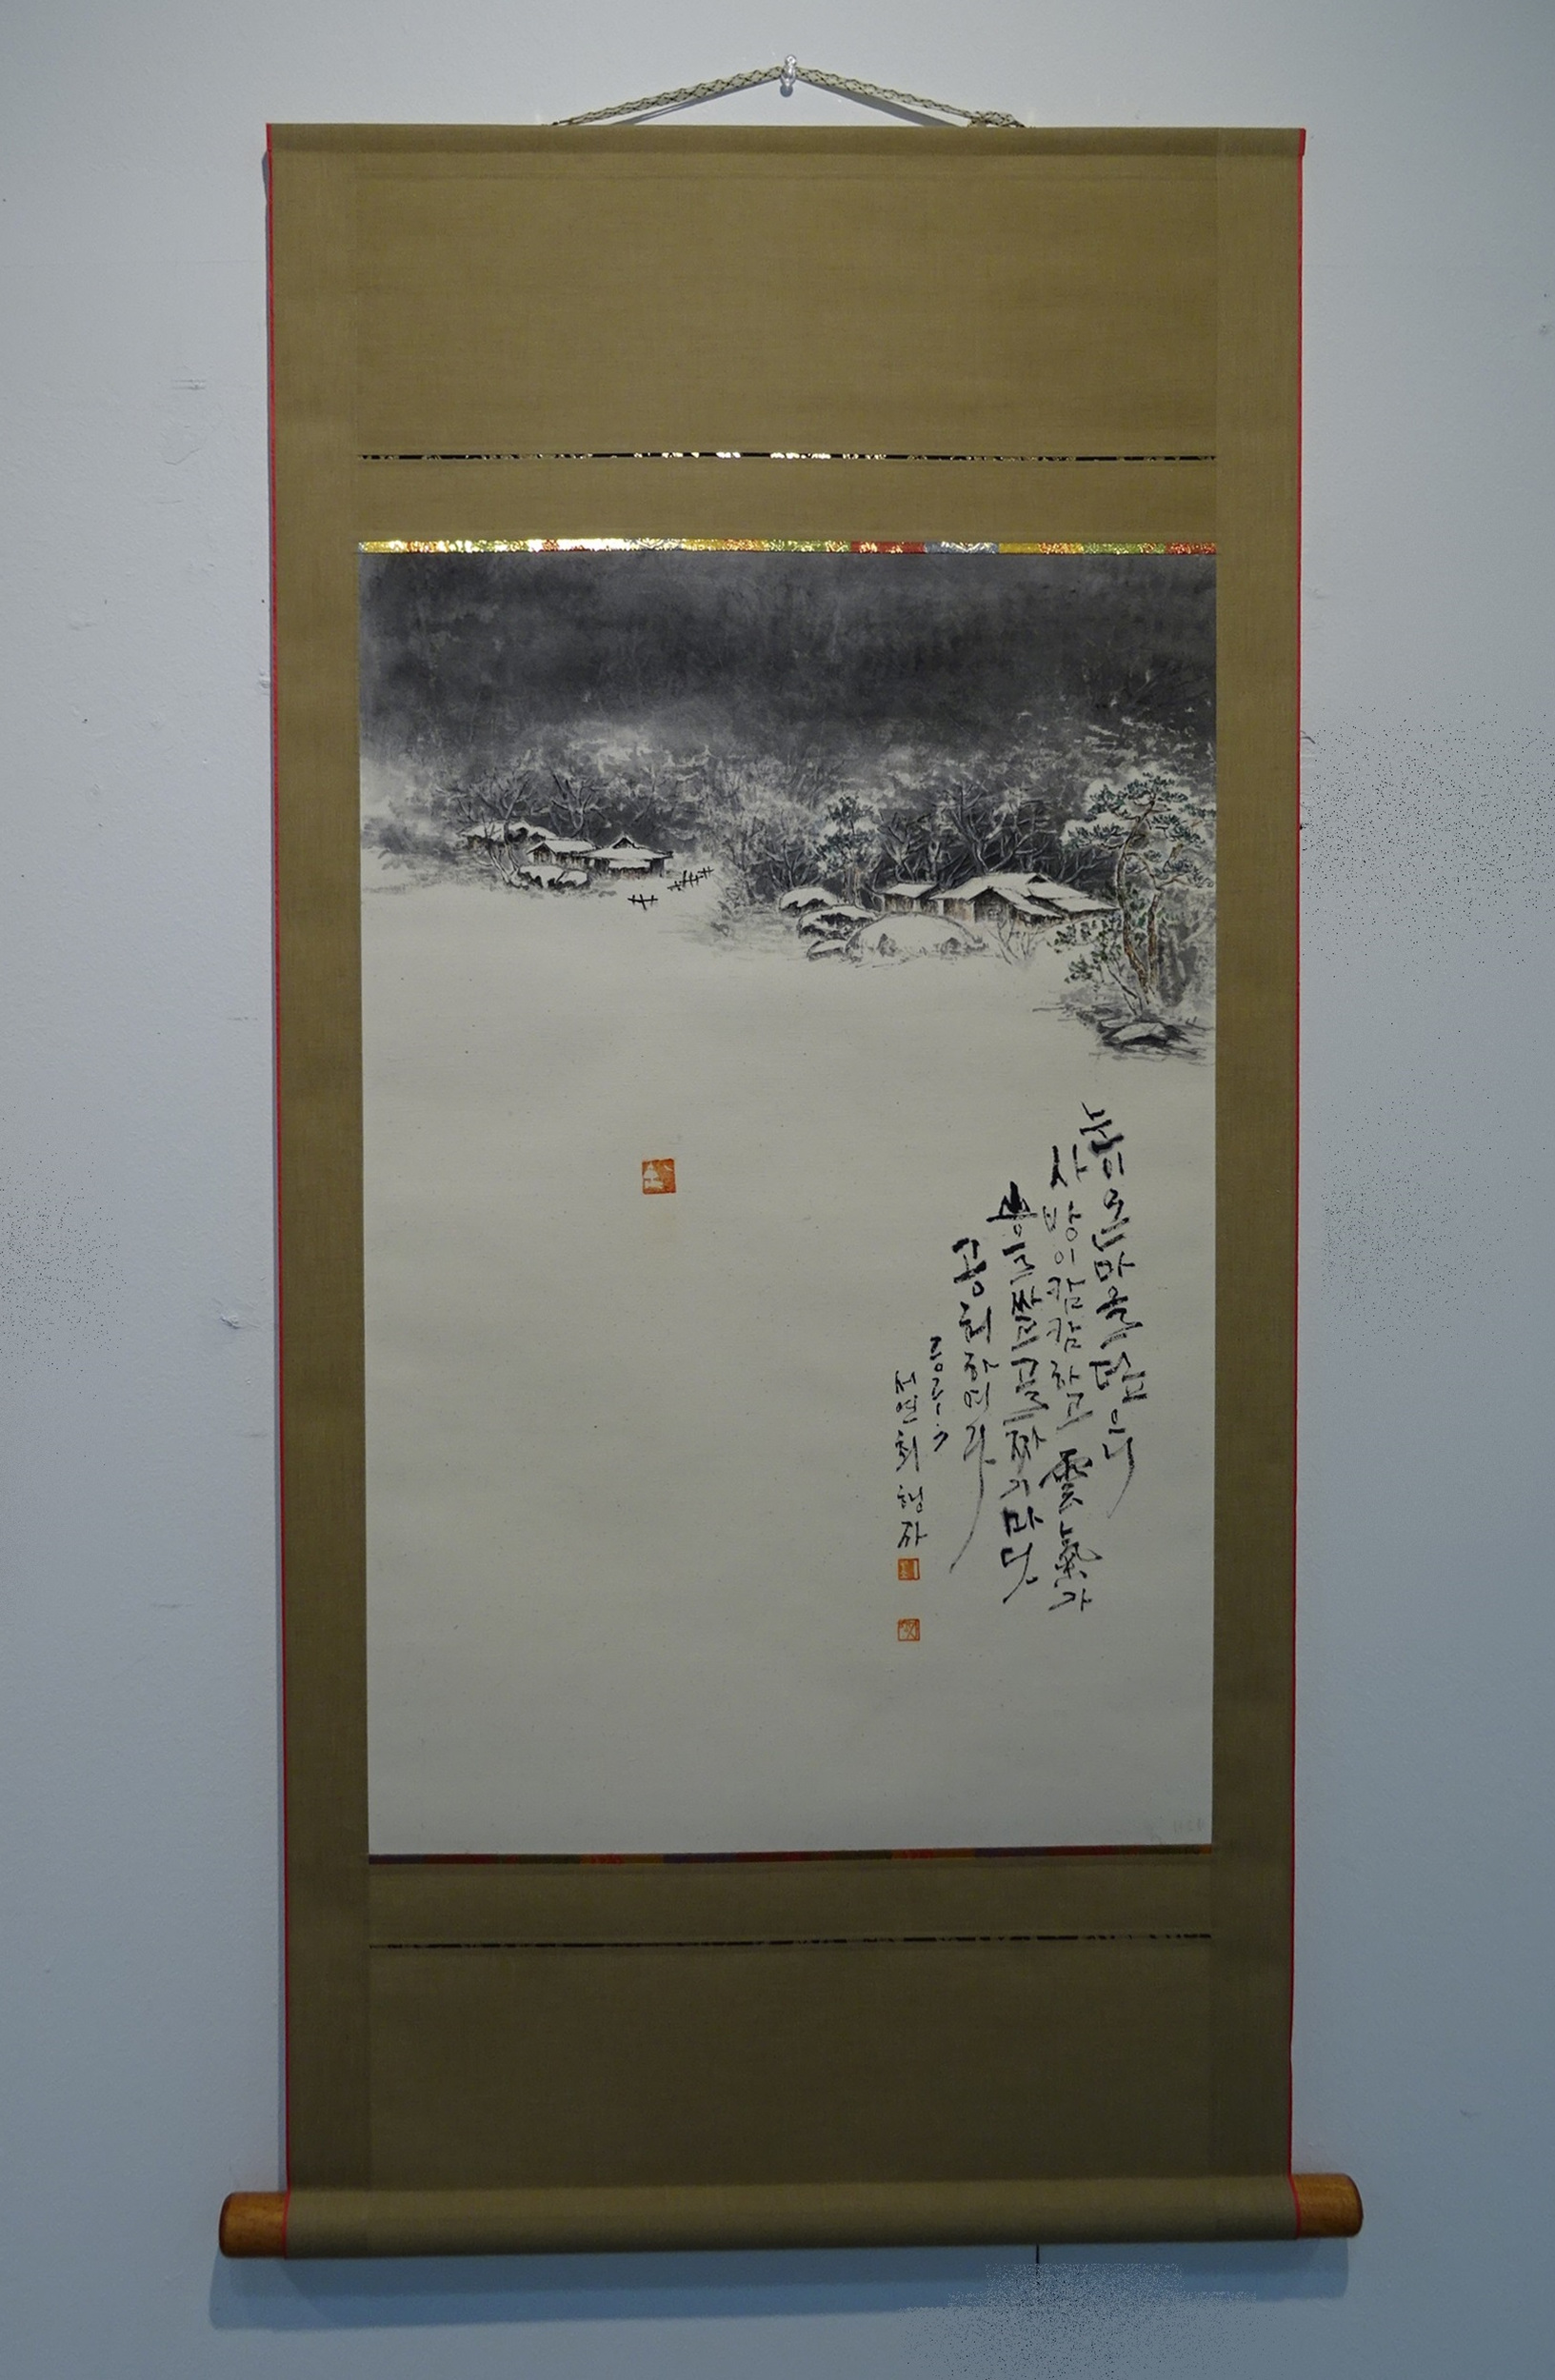 눈이 온마을 덮으니
사방이 캄캄하고 雲氣가
봉을 싸고 골짜기마다
공허하여라
서연 최형자